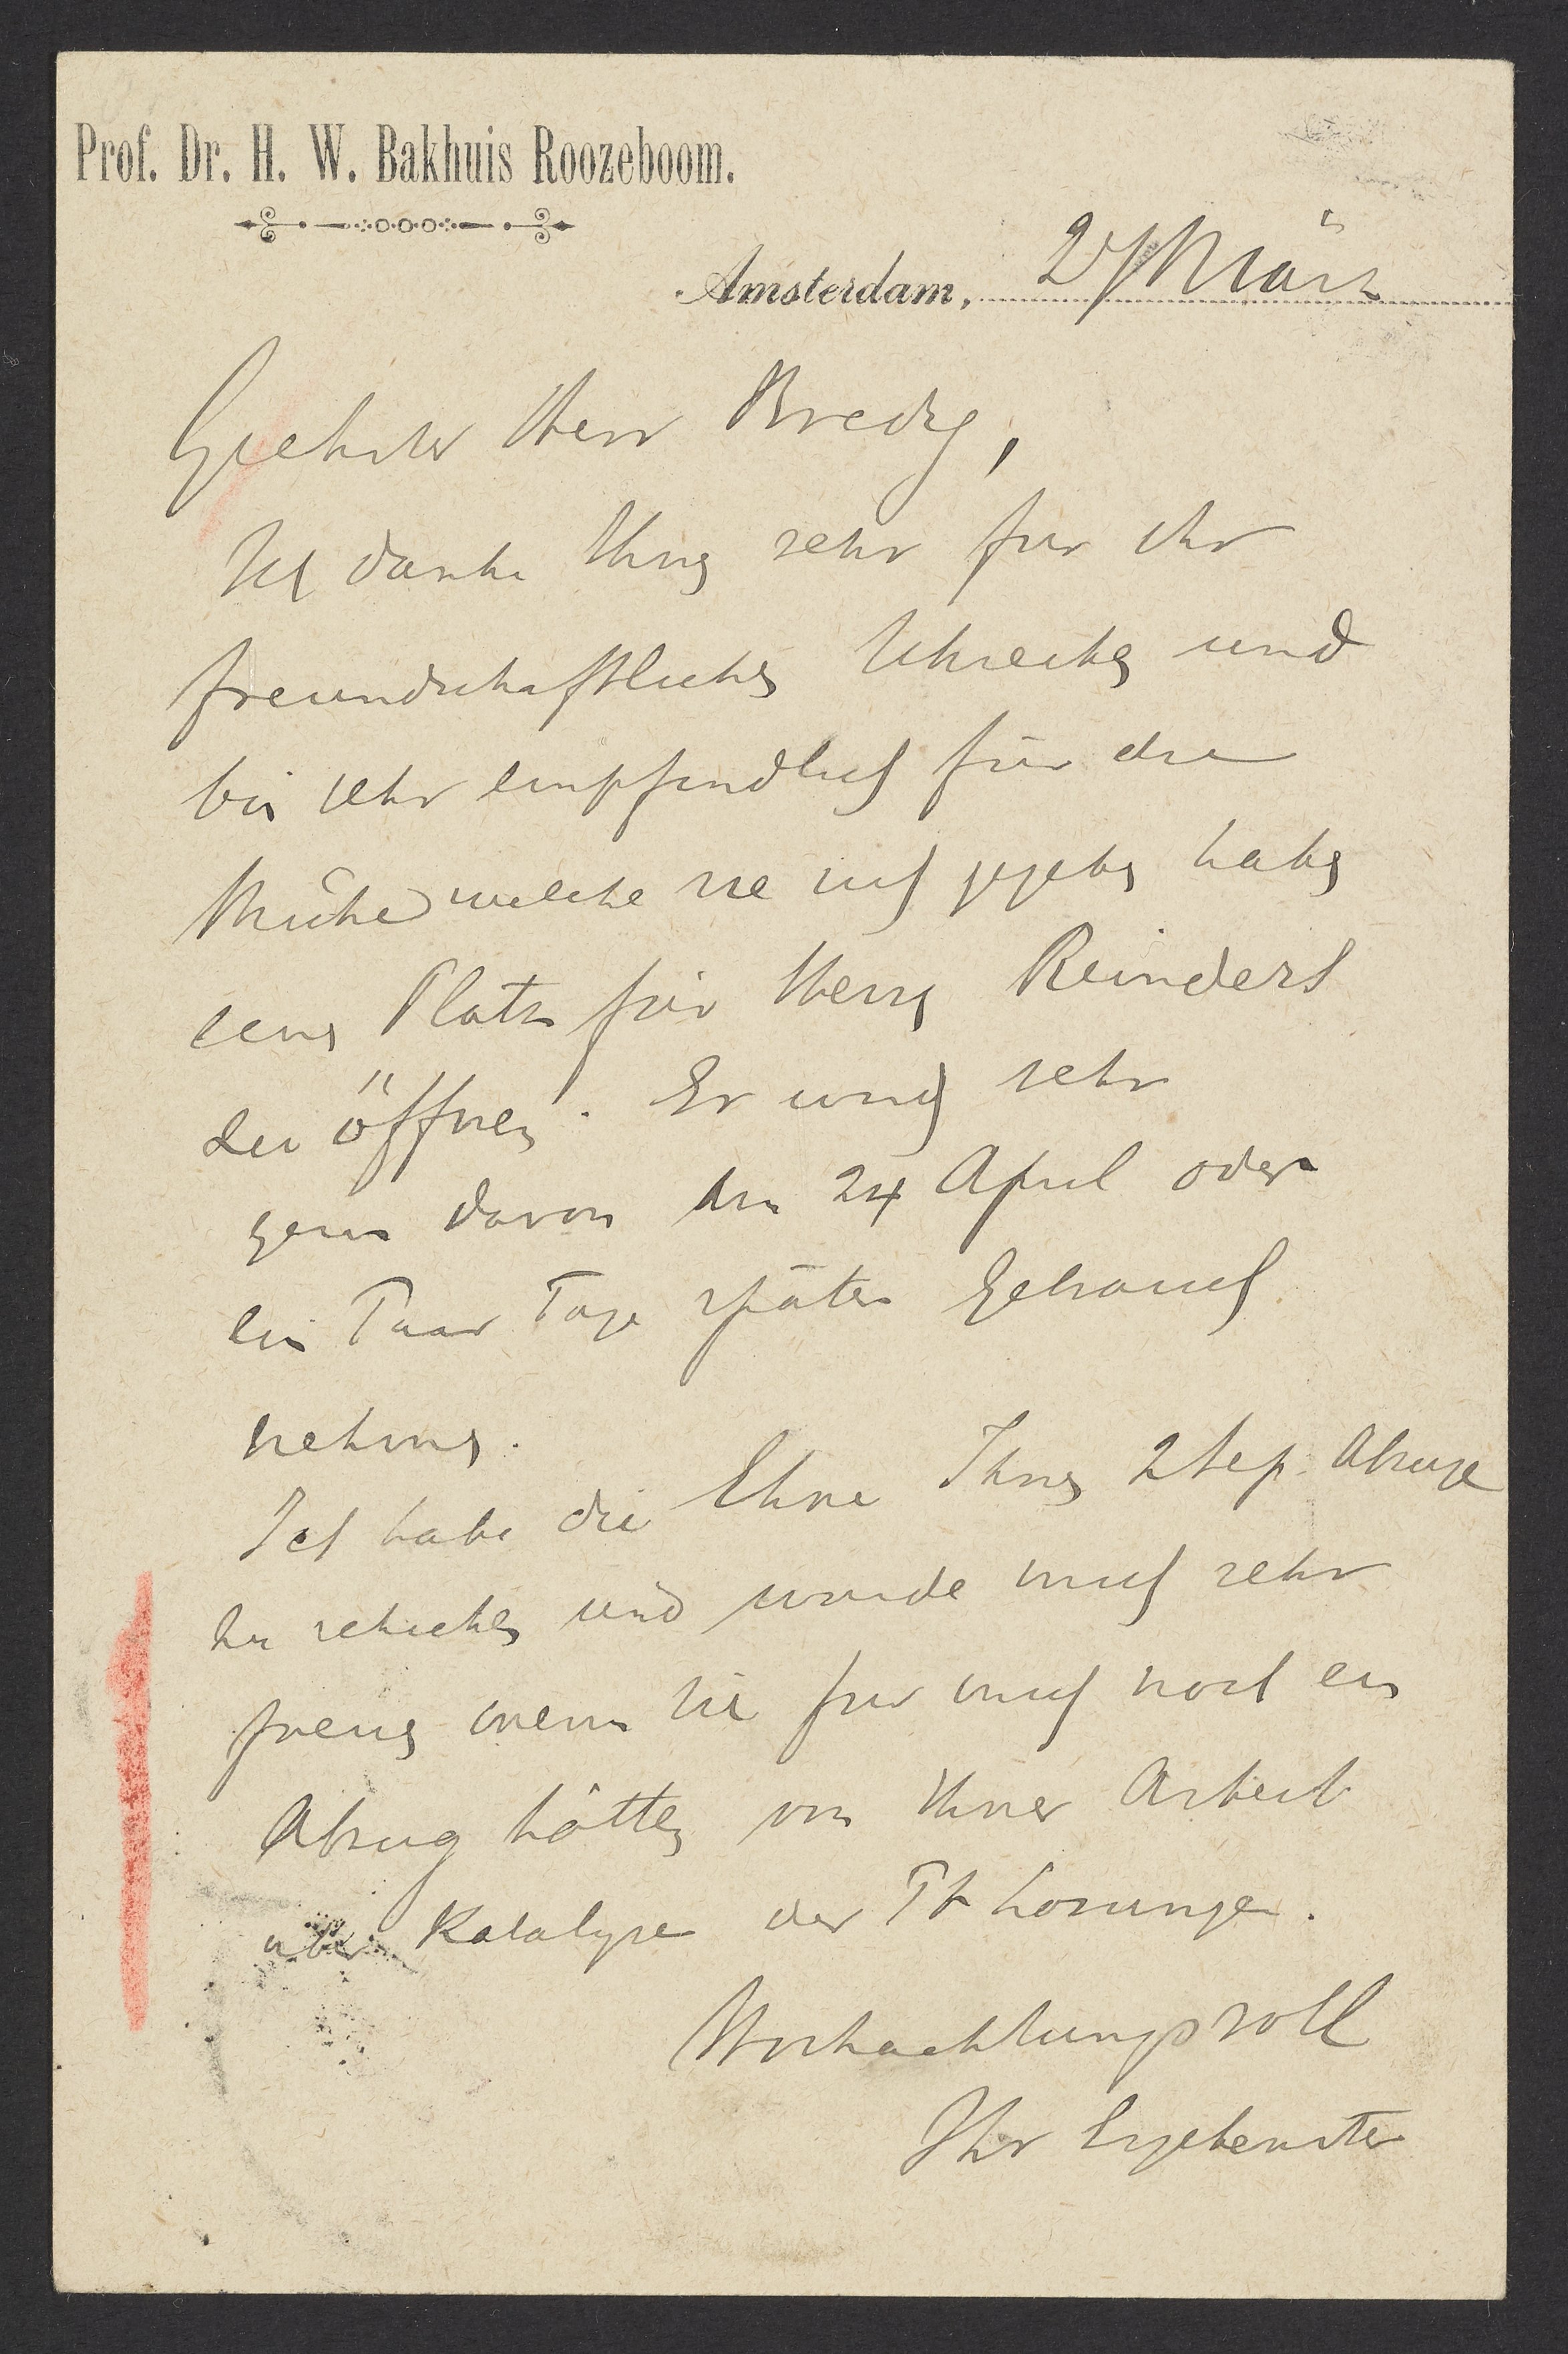 Prof. Dr. H. W. Bakhuis Roozeboom.
Amsterdam, 27 März
Geehrter Herr Bredig,
Ich danke Ihnen sehr fur ihr
freundschaftliches Schreiben und
bin sehr empfindlich für die
Mühe welche sie sich gegeben haben
einen Platz für Herrn Reinders
zu öffnen. Er wird sehr
gern davon den 24 April oder
ein Paar Tage später Gebrauch
nehmen.
Ich habe die Ehre Ihnen 2 Sep. Abzuge
zu schicken und wurde mich sehr
freuen wenn Sie fur mich noch ein
Abzug hätten von Ihrer Arbeit
über Katalyse der Pt Losungen.
Hochachtungsvoll
Ihr Ergebenster